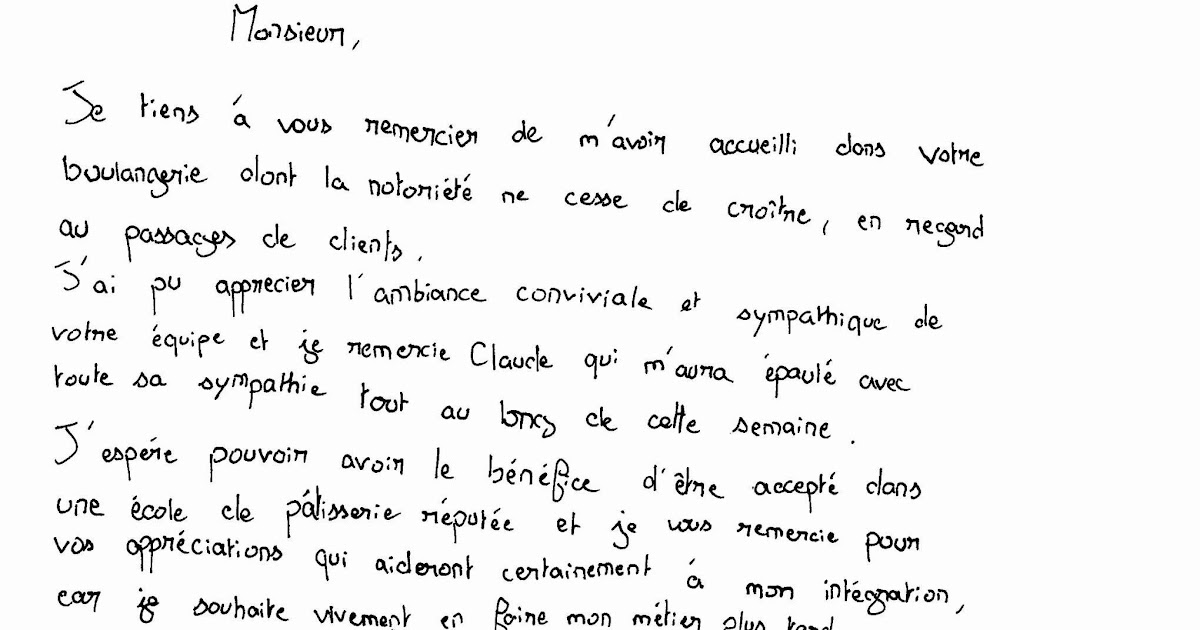 Monsieur,
Je tiens à vous remercier de m'avoir accueilli dans votre
boulangerie dont la notoriété ne cesse de croître, en regard
au passages de clients.
J'ai pu apprecier l'ambiance conviviale et sympathique de
votre équipe et je remercie Claude qui m'aura épaulé avec
toute sa sympathie tout au long de cette semaine.
J'espére pouvoir avoir le bénéfice d'être accepté dans
une école de pâtisserie réputée et je vous remercie pour
vos appréciations qui aideront certainement à mon intégration,
car je souhaite vivement en faire mon métier plus tard